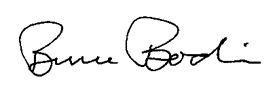 Bruce Bodin